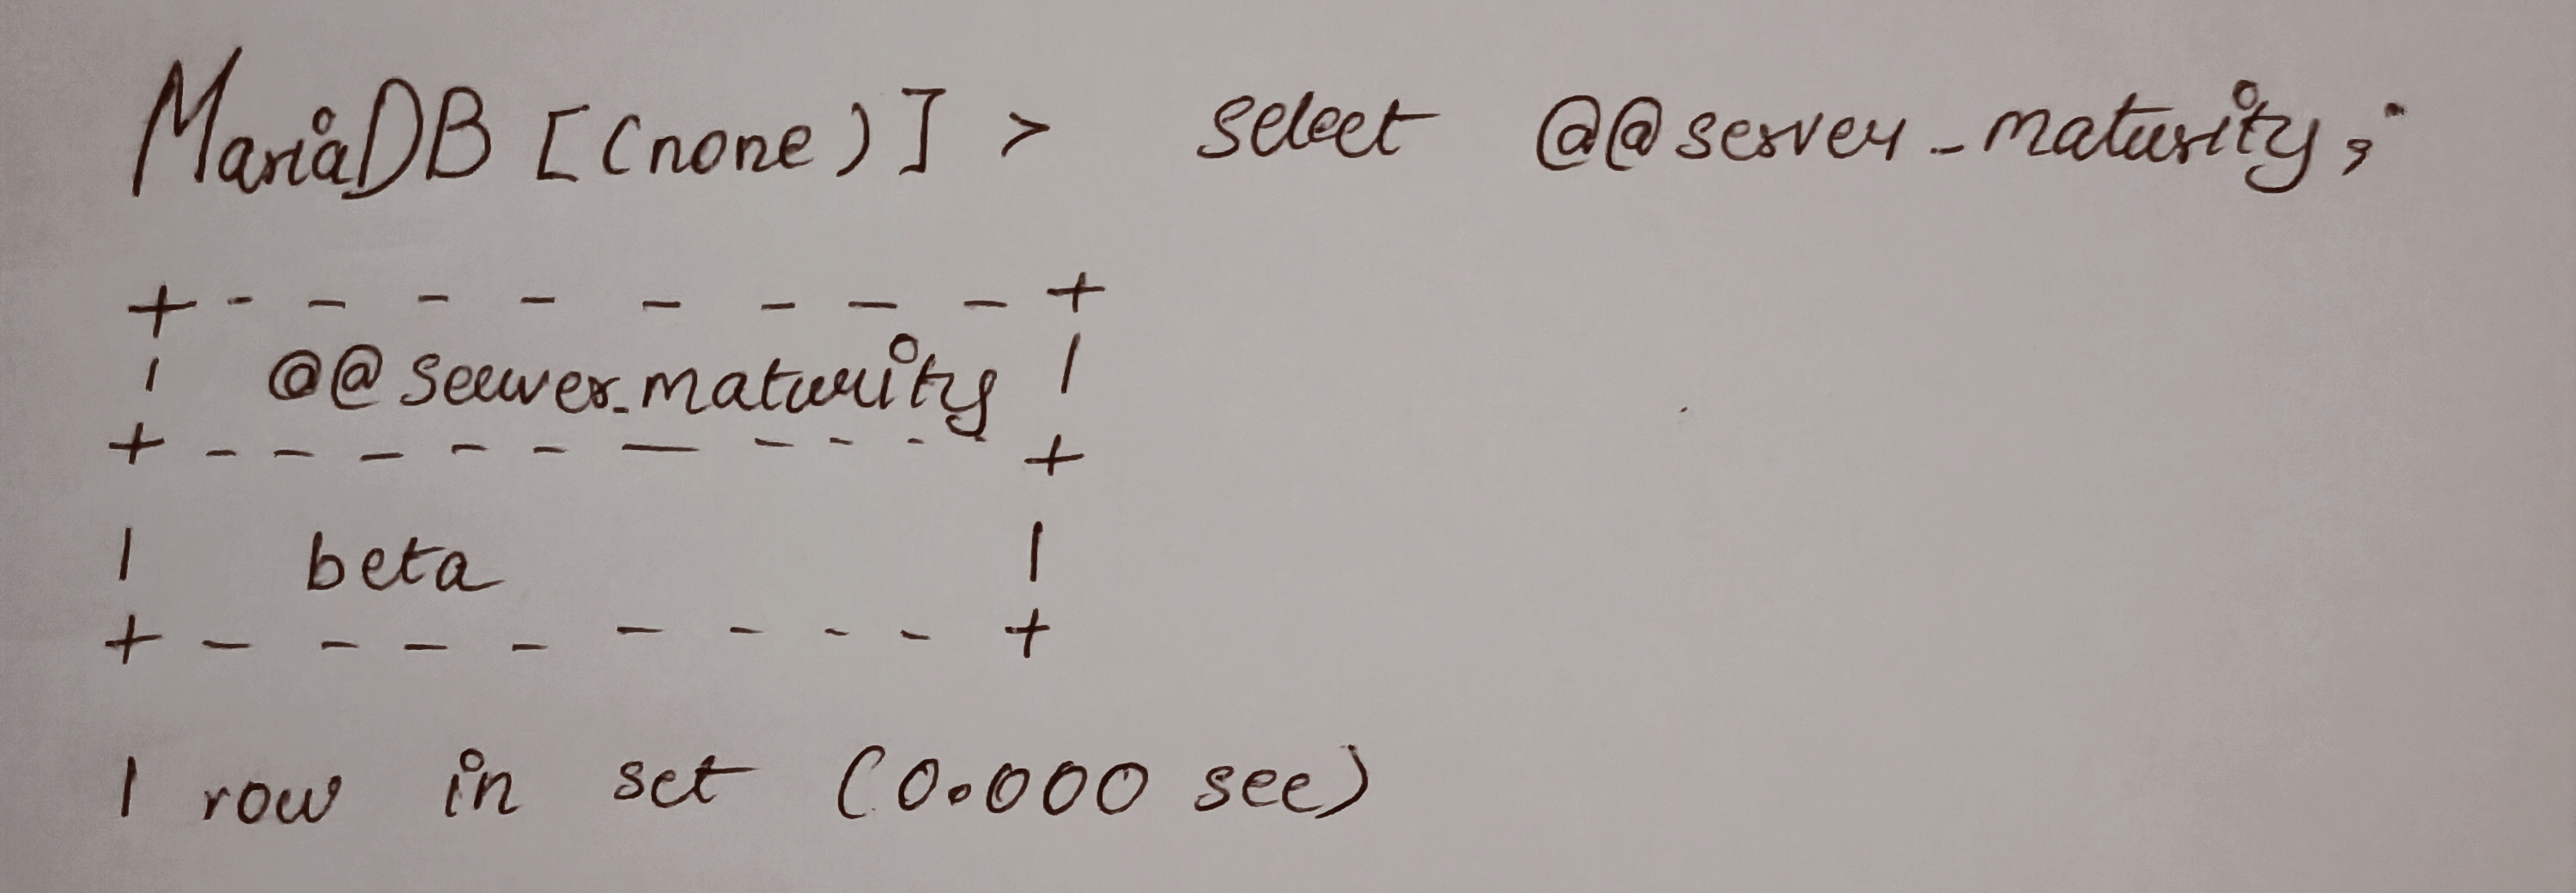 MariaDB [(none)] > select @@server_maturity;
+- - - - - - - - +
| @@server_maturity |
+ - - - - - - - - - +
| beta |
+ - - - - - - - - +
1 row in set (0.000 sec)